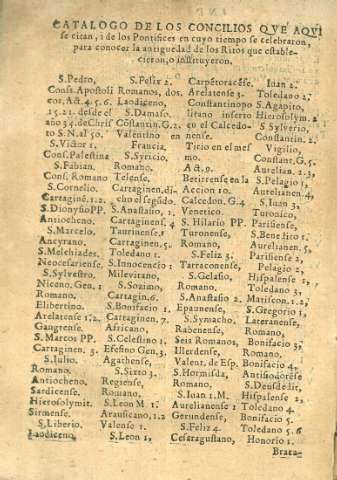 CATALOGO DE LOS CONCILIOS QVE AQVI
se citan, i de los Pontifices en cuyo tiempo se celebraron,
para conocer la antiguedad de los Ritos que estable-
cieron, o instituyeron.
S. Pedro,
Cons. Apostoli
cor. Act. 4. 5. 6.
15. 21. desde el
año 34. de Chris
to S. N. al 50.
S. Victor 1.
Cons. Palestina
S. Fabian.
Cons. Romano
S. Cornelio.
Cartagine. 1. 2.
S. Dionysio PP.
Antiocheno.
S. Marcelo.
Ancyrano.
S. Melchiades.
Neocesariense.
S. Sylvestro.
Niceno. Gen. 1
Romano.
Elibertino.
Arelatense 1. 2.
Gangrense.
S. Marcos PP.
Cartaginen. 3.
S. Iulio.
Romano.
Antiocheno.
Sardicense.
Hierosolymit.
Sirmense.
S. Liberio.
Laodiceno,
S. Felix 2.
Romanos, dos.
Laodiceno,
S. Damaso.
Cõstantin. G. 2.
Valentino en
Francia.
S. Syricio.
Romano.
Telense.
Cartaginen, di-
cho el segũdo.
S. Anastasio, 1.
Cartaginens, 4
Taurinense. 1
Cartaginen. 5.
Toledano 1.
S. Innocencio 1
Milevitano,
S. Sozimo,
Cartagin. 6.
S. Bonifacio 1.
Cartaginen. 7.
Africano,
S. Celestino 1,
Efesino Gen. 3,
Agathense,
S. Sixto 3.
Regiense,
Romano,
S. Leon M. 1.
Arausicano, 1. 2
Valense 1.
S. Leon 1,
Carpetoracẽse.
Arelatense 3.
Constantinopo
litano inserto
en el Calcedo-
nense.
Ticio en el mes
mo.
Act. 9.
Beterrense en la
Accion 10.
Calcedon. G. 4
Venetico.
S. Hilario PP.
Turonense,
Romano,
S. Feliz 3.
Tarraconense,
S. Gelasio,
Romano,
S. Anastasio 2.
Epaunense,
S. Symacho,
Rabenense,
Seis Romanos,
Illerdense,
Valent. de Esp.
S. Hormisda,
Romano,
S. Ioan 1. M.
Aurelianense 1
Gerundense,
S. Feliz 4.
Cesaragustano,
Iuan 2.
Toledano 2.
S. Agapito,
Hierosolym. 2
S. Sylverio,
Constantin. 2.
Vigilio,
Constant, G. 5.
Aurelian. 2. 3,
S. Pelagio 1,
Aurelianen. 4,
S. Iuan 3,
Turonico,
Parisiense,
S. Benedito 1.
Aurelianen. 5.
Parisiense 2,
Pelagio 2,
Hispalense,
Toledano 3,
Matiscon. 1. 2,
S. Gregorio 1,
Lateranense,
Romano,
Bonifacio 3,
Romano,
Bonifacio 4,
Antisiodorẽse
S. Deusdedit,
Hispalense 2,
Toledano 4.
Bonifacio 5.
Toledano 5. 6
Honorio 1.
Braca-